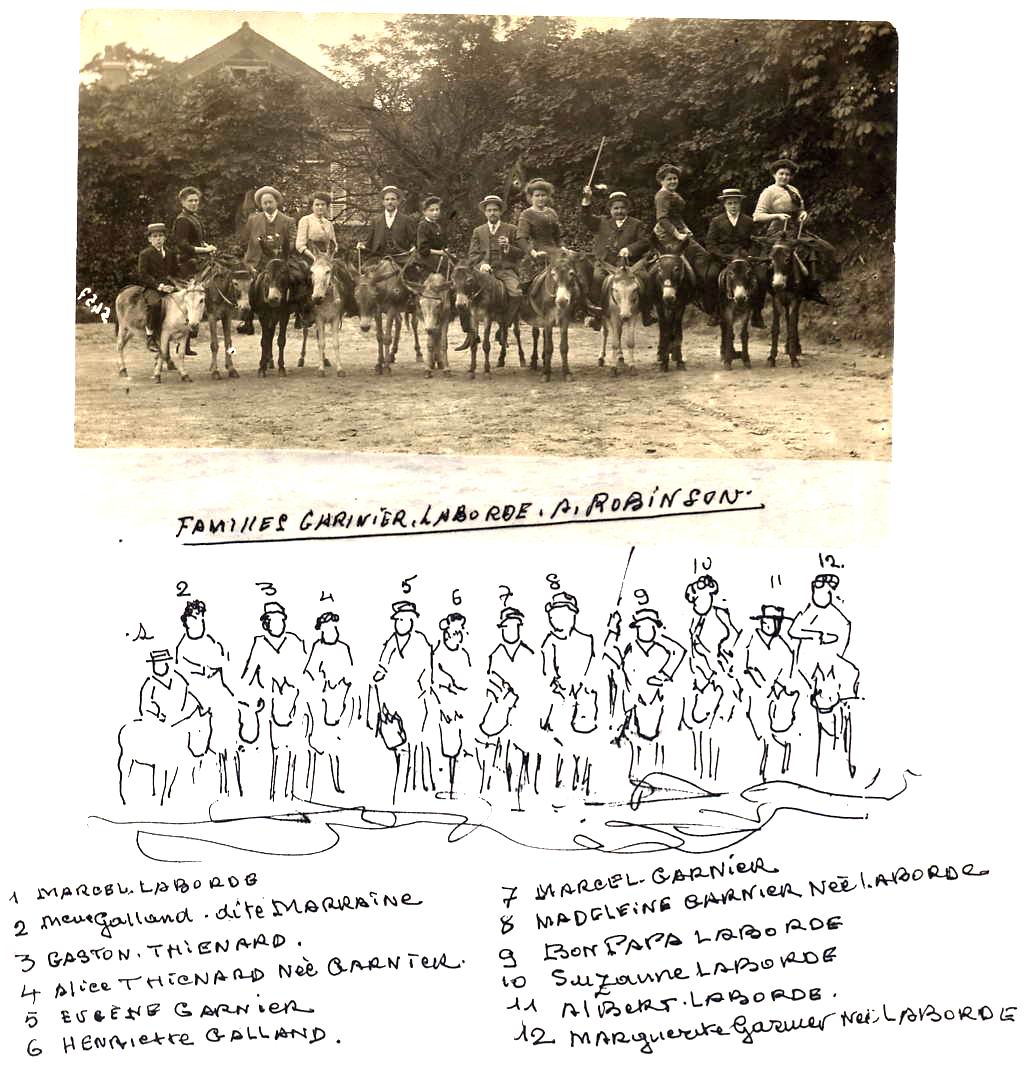 FAMILLES GARINIER. LABORDE. A. ROBINSON.
2 3 4 5 6 7 8 9 10 11 12.
1
1 MARCEL. LABORDE
2 Galland. dite MARRAINE
3 GASTON. THIENARD.
4 Alice THIENARD Neè GARNIER.
5 EUGÈNE GARNIER
6 HENRIETTE GALLAND.
7 MARCEL. GARNIER
8 MADELEINE GARNIER Neè LABORDE
9 BON PAPA LABORDE
10 Suzanne LABORDE
11 AlBERT. LABORDE.
12 MARguerite Garnier Neè. LABORDE